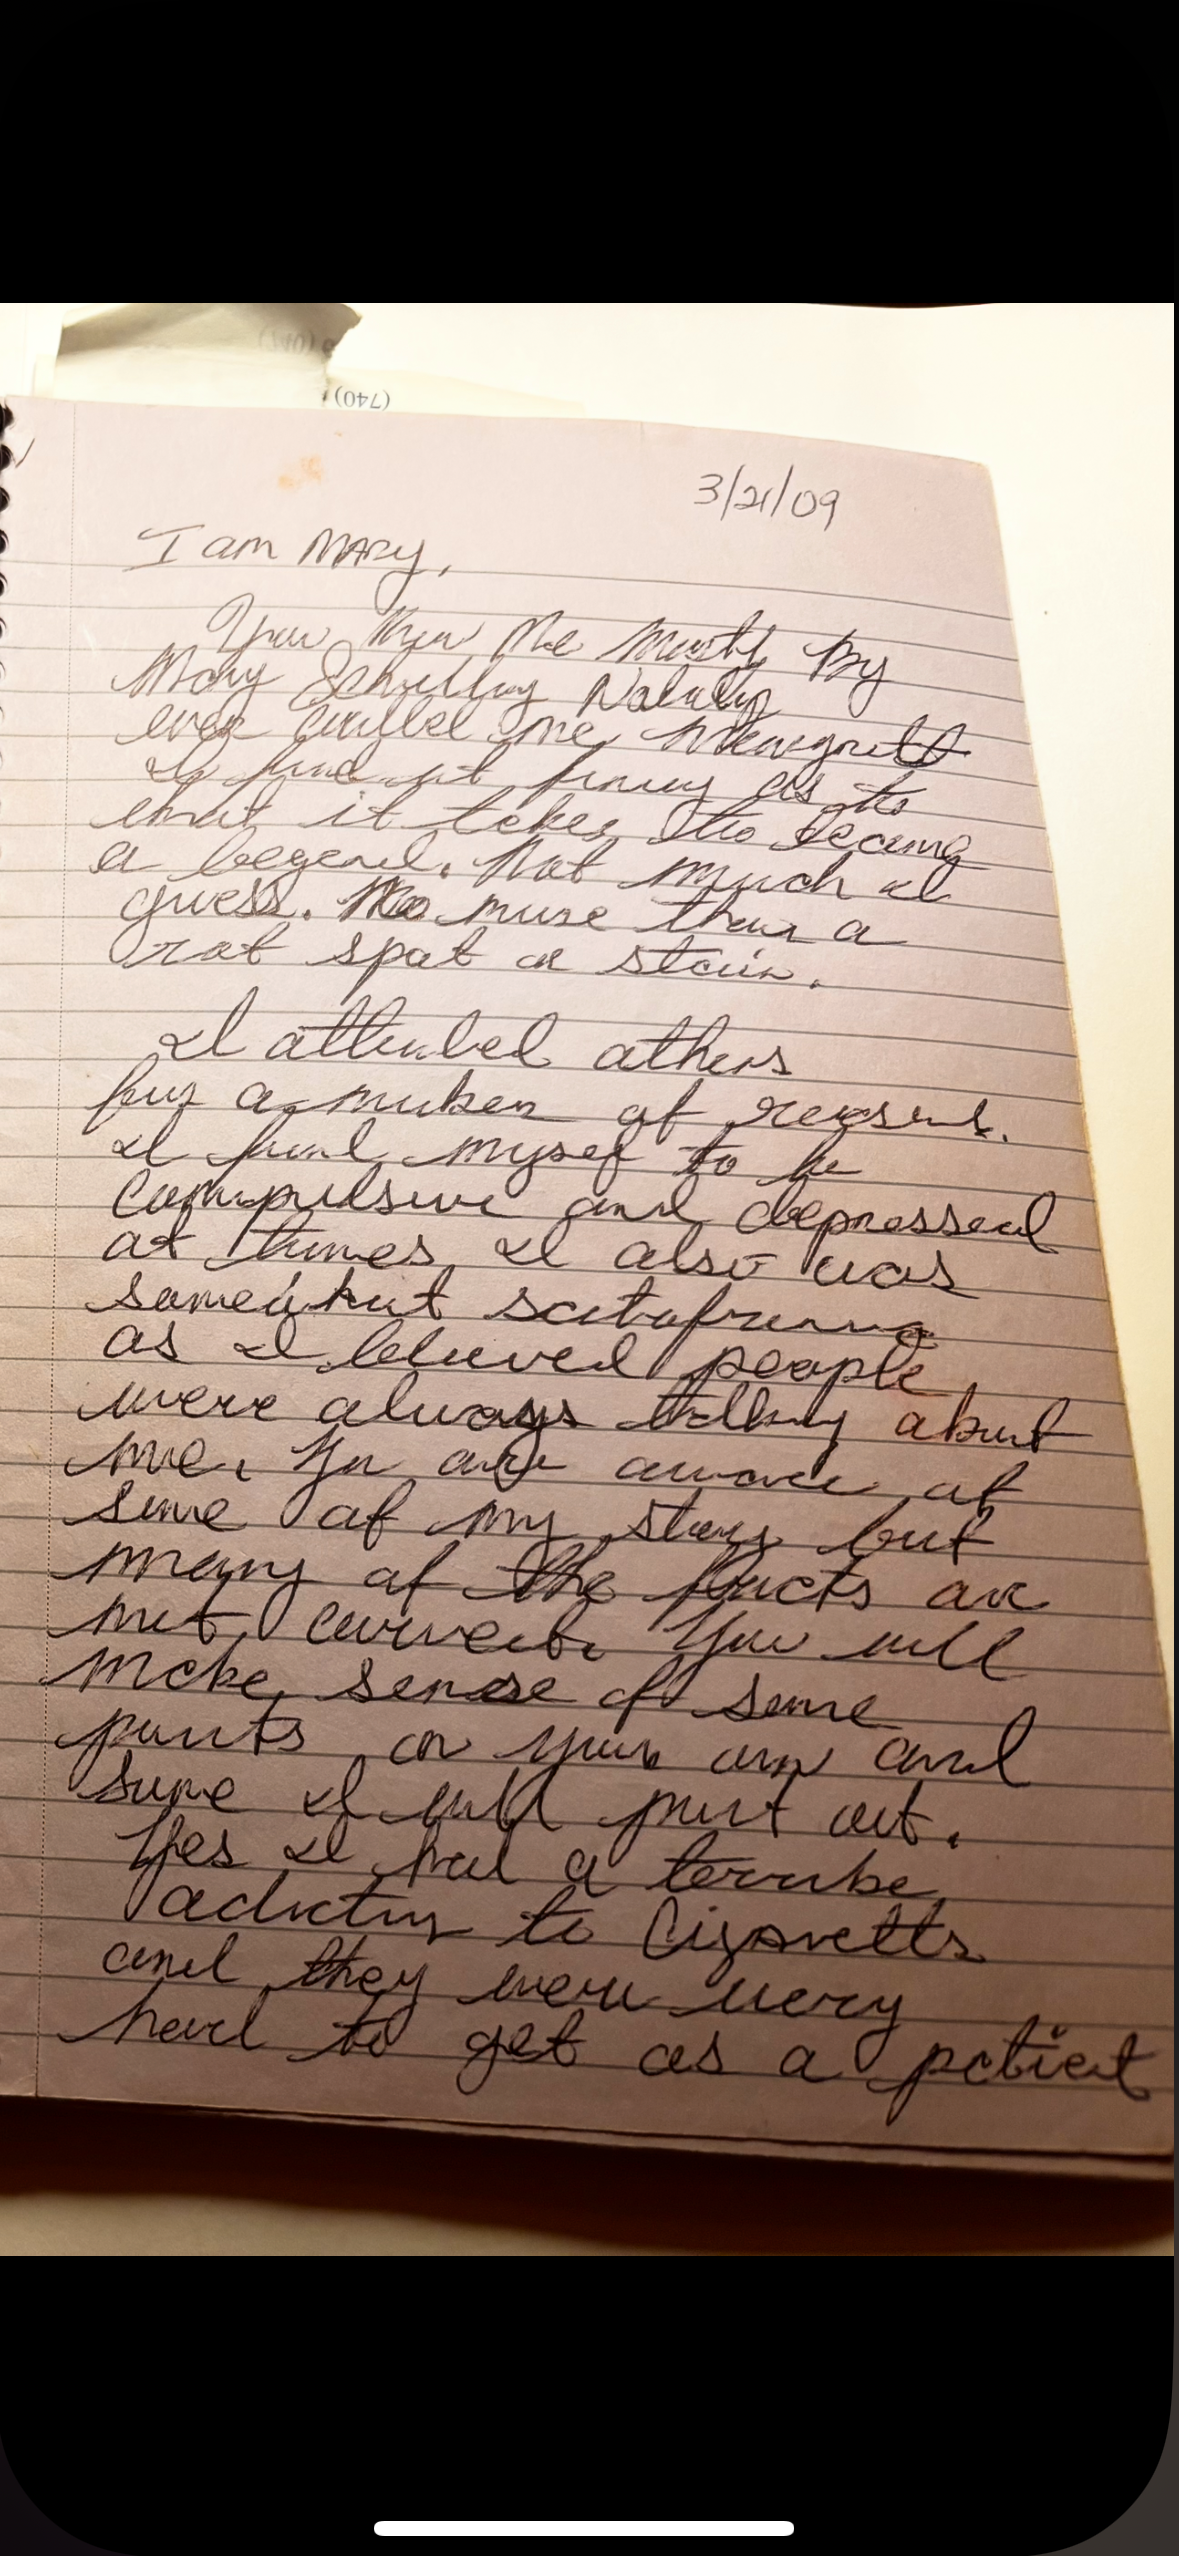 (740)
3/21/09
I am MARY,
You know me mostly By
Mary Schilling Nobody
ever called me
I find it funny as to
what it takes to become
a legend. Not much I
guess. No more than a
rot spot or stain.
I others
for a number of reasons.
I find myself to be
compulsive and depressed
at times I also was
somewhat
as I believed people
were always talking about
me. You are aware of
some of my story but
many of the facts are
not correct. You will
make sense of some
parts on your own and
some I will point out.
Yes I had a terrible
adiction to Cigaretts
and they were very
hard to get as a patient